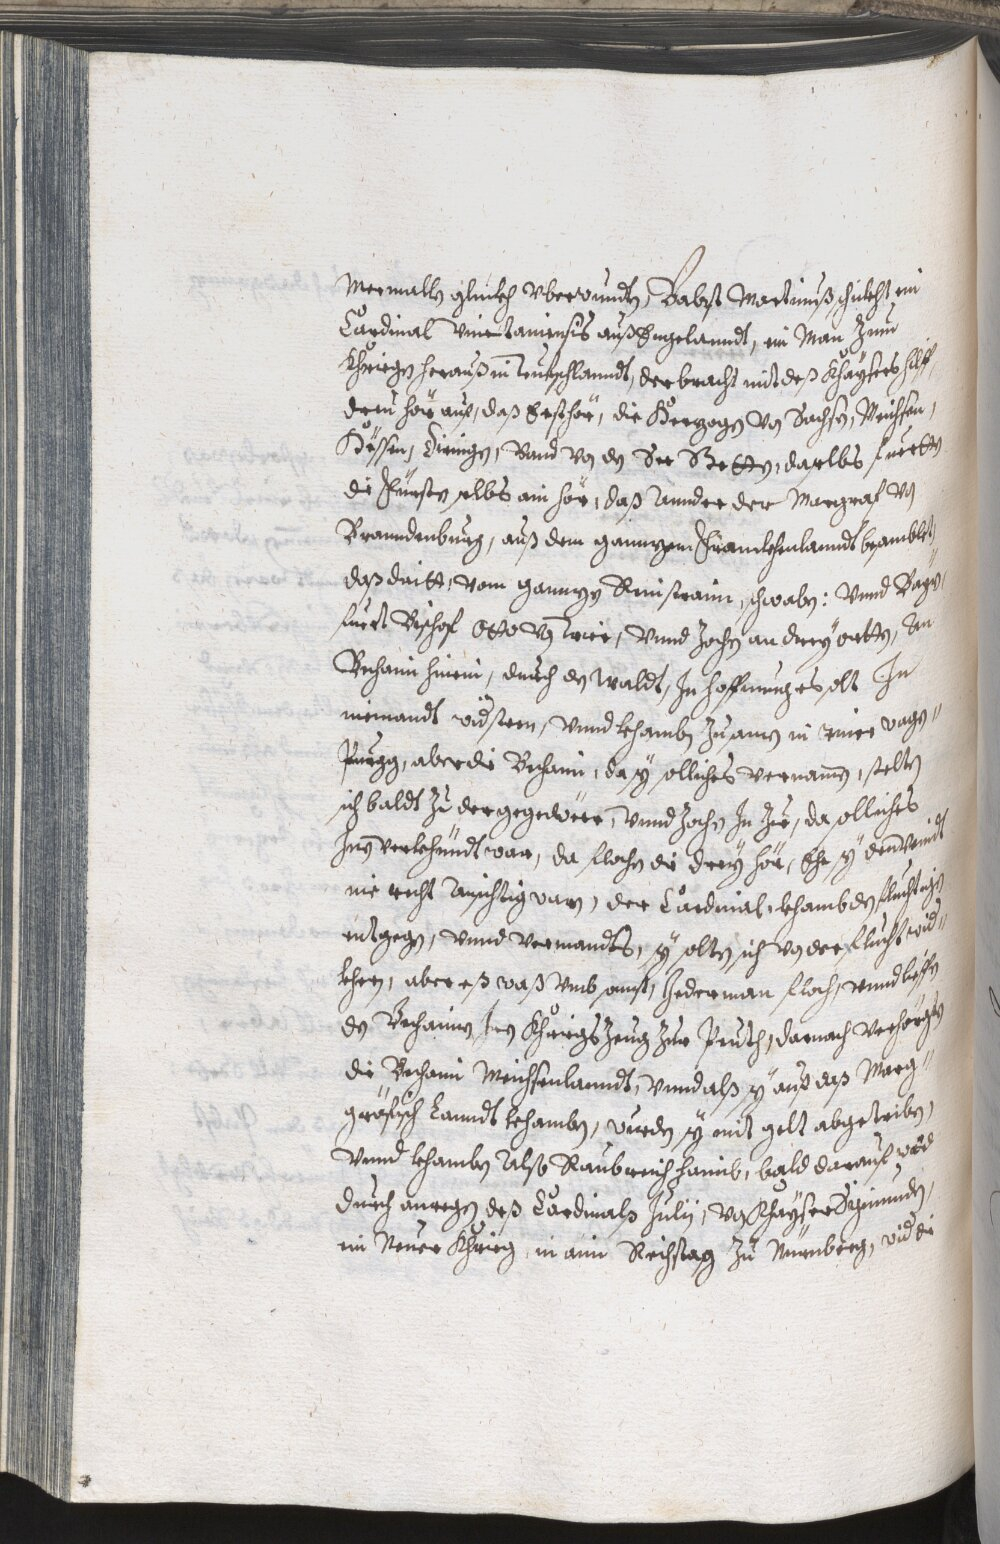 Mermalls gleich vberwundten, Babst Martinuß schickht ein
Cardinal Vintaniensis auß Engelanndt, ein Man Zum
Khriegen herauß in Teutschlanndt, der bracht mit deß Khaysers hilff
dreu hör auf, daß Erst hör, die Herzogen von Sachsen, Meichsen,
Hössen, Diringen, Vnnd von den See Stetten, daselbs fuertten
die Fürsten selbs ain hör, daß Annder der Margraf von
Branndenburg, auß dem ganntzem Franckhenlanndt besamblet,
daß dritt, vom ganntzen Reinstraim, schwaben: Vnnd Bayrn,
fuert Bischof Otto von Trier, Vnnd zochen an drey ortten, An
Behaim hinein, durch den Waldt, In hoffnung es solt In
niemandt widsteen, Vnnd khamben zusamen in einer wagen¬
Purgg, aber die Behaim, da sy solliches vernamen, stelten
sich baldt zu der gegenwöre, Vnnd zochen In zue, da solliches
Inen verkhündt war, da flochen die drey hör, Ehe sy den Veindt
nie recht Ansichtig warn, der Cardinal, khamb den fluchtigen
entgegen, Vnnd vermandts, sy solten sich von der flucht wid¬
khern, aber eß waß Vmb sonst, Jederman floch, Vnnd liessen
den Behaimen Iren Khriegszeug zur Peuth, darnach Verhörgten
die Behaim Meichsenlanndt, Vnnd alß sy auf daß Marg¬
gräfisch Lanndt khamben, wurden sy mit gelt abgetriben,
Vnnd khamben Also Raubreich haimb, bald darauf wird
durch anregen deß Cardinals Julij, von Khayser Sigmunden,
ein Neuer Khrieg, in aim Reichstag zu Nürnberg, wid die